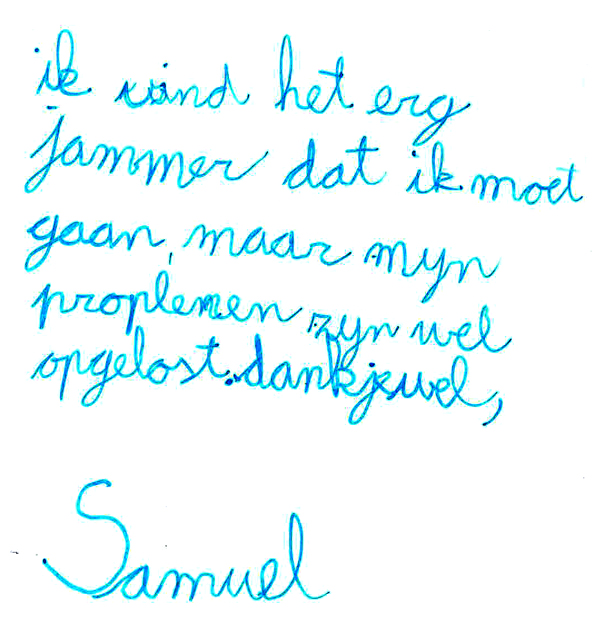 ik vind het erg
jammer dat ik moet
gaan, maar mijn
proplemen zijn wel
opgelost. dankjewel,
Samuel